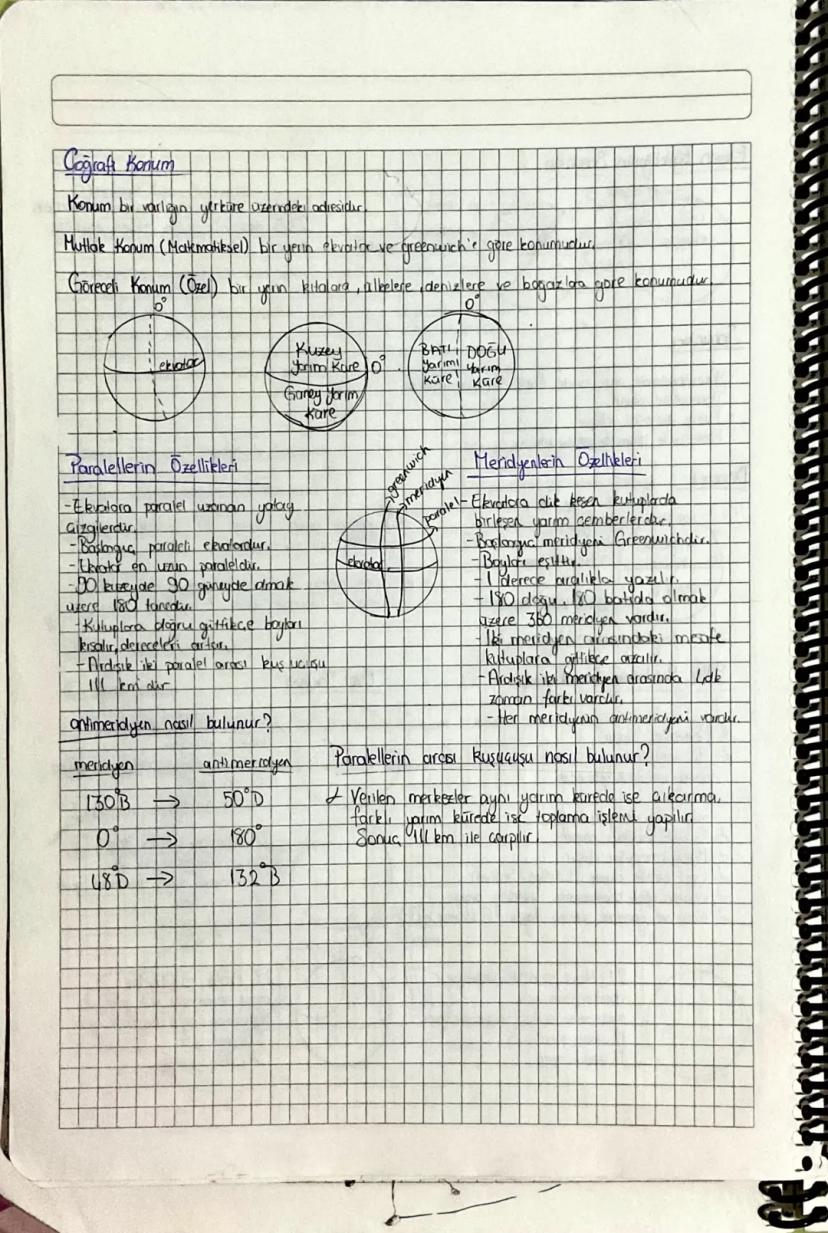 Coğrafi Konum
Konum bir varlığın yerküre üzerindeki adresidir.
Mutlak Konum (Matematiksel) bir yerin ekvator ve greenwich'e göre konumudur.
Göreceli Konum (Özel) bir yerin kıtalara, ülkelere, denizlere ve boğazlara göre konumudur.
0°
ekvator
Kuzey
Yarım Küre
0°
Güney Yarım
Küre
0°
BATI
Yarım
Küre
DOĞU
Yarım
Küre
Paralellerin Özellikleri
-Ekvatora paralel uzanan yatay
çizgilerdir.
-Başlangıç paraleli ekvatordur.
-Ekvator en uzun paraleldir.
-90 kuzeyde 90 güneyde olmak
üzere 180 tanedir.
-Kutuplara doğru gittikçe boyları
kısalır, dereceleri artar.
-Ardışık iki paralel arası kuş uçuşu
111 km dir
greenwich
meridyen
paralel
ekvator
Meridyenlerin Özellikleri
-Ekvatoru dik kesen kutuplarda
birleşen yarım çemberlerdir.
-Başlangıç meridyeni Greenwichdir.
-Boyları eşittir.
-1 derece aralıkla yazılır.
-180 doğu, 180 batıda olmak
üzere 360 meridyen vardır.
-İki meridyen arasındaki mesafe
kutuplara gittikçe azalır.
-Ardışık iki meridyen arasında 4dk
zaman farkı vardır.
-Her meridyenin antimeridyeni vardır.
antimeridyen nasıl bulunur?
meridyen antimeridyen
130°B → 50°D
0° → 180°
48°D → 132°B
Paralellerin arası kuşuçuşu nasıl bulunur?
Verilen merkezler aynı yarım kürede ise çıkarma,
farklı yarım kürede ise toplama işlemi yapılır.
Sonuç 111 km ile çarpılır.